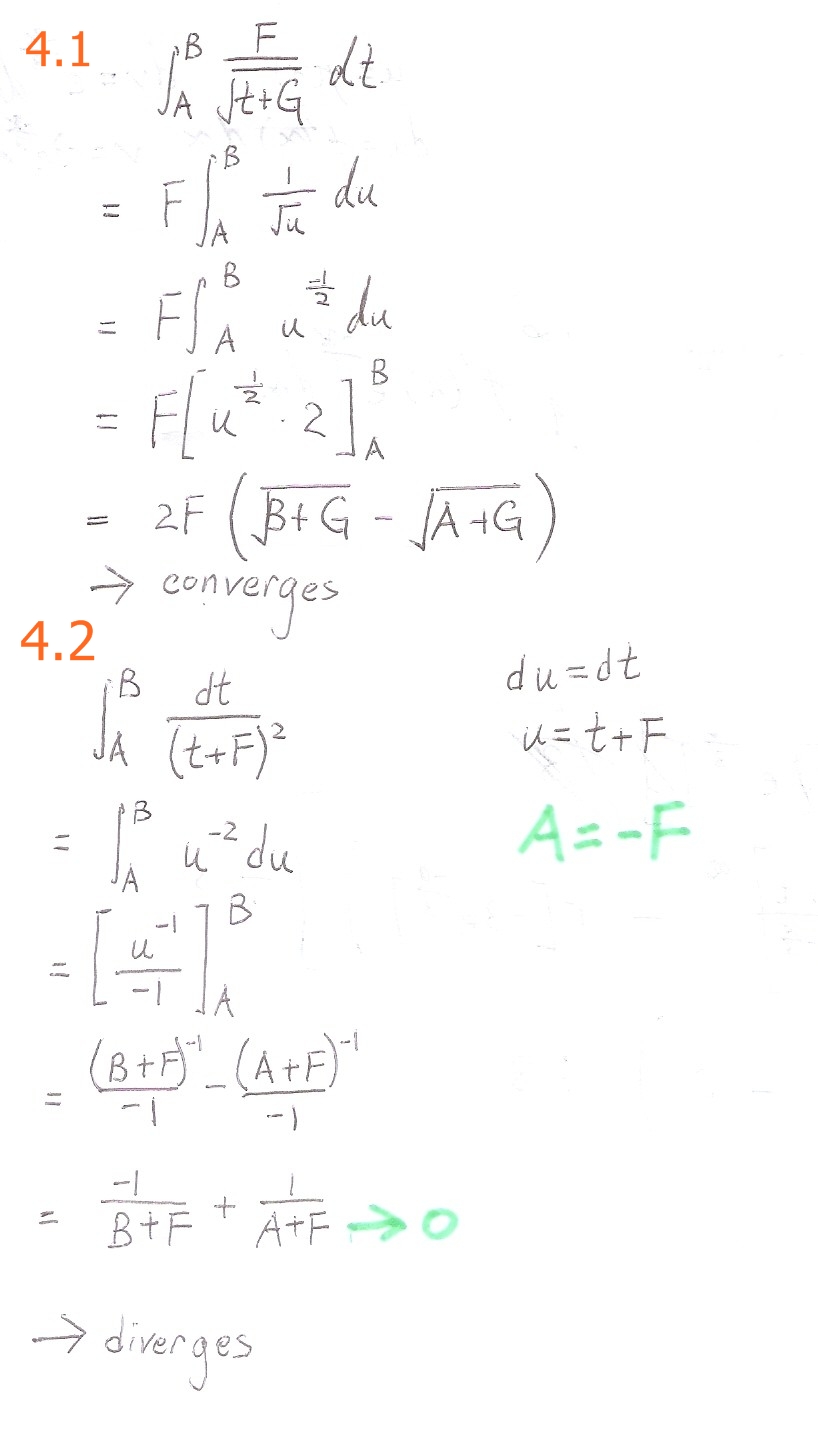 4.1 ∫_A^B F/√(t+G) dt
= F∫_A^B 1/√u du
= F∫_A^B u^(-1/2) du
= F[u^(1/2) · 2]_A^B
= 2F (√(B+G) - √(A+G))
→ converges
4.2
∫_A^B dt/(t+F)^2
du = dt
u = t+F
A = -F
= ∫_A^B u^-2 du
= [u^-1/-1]_A^B
= (B+F)^-1/-1 - (A+F)^-1/-1
= -1/(B+F) + 1/(A+F) → 0
→ diverges